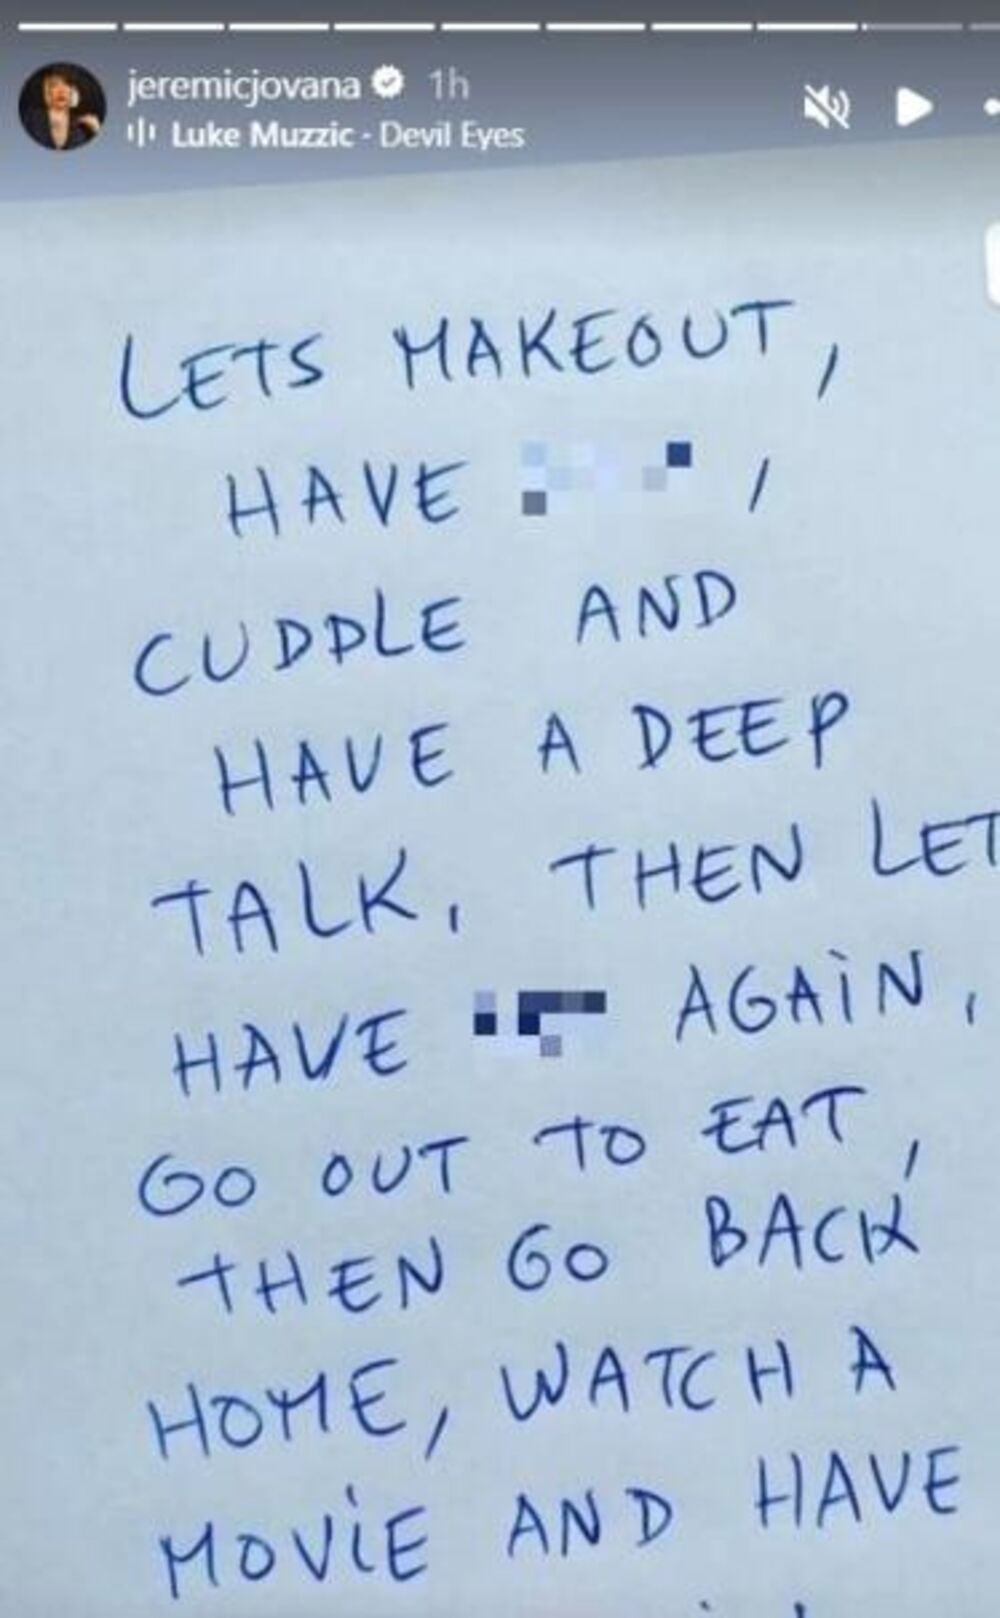 jeremicjovana 1h
Luke Muzzic - Devil Eyes
LETS MAKEOUT,
HAVE ,
CUDDLE AND
HAVE A DEEP
TALK, THEN LET
HAVE AGAIN,
GO OUT TO EAT,
THEN GO BACK
HOME, WATCH A
MOVIE AND HAVE